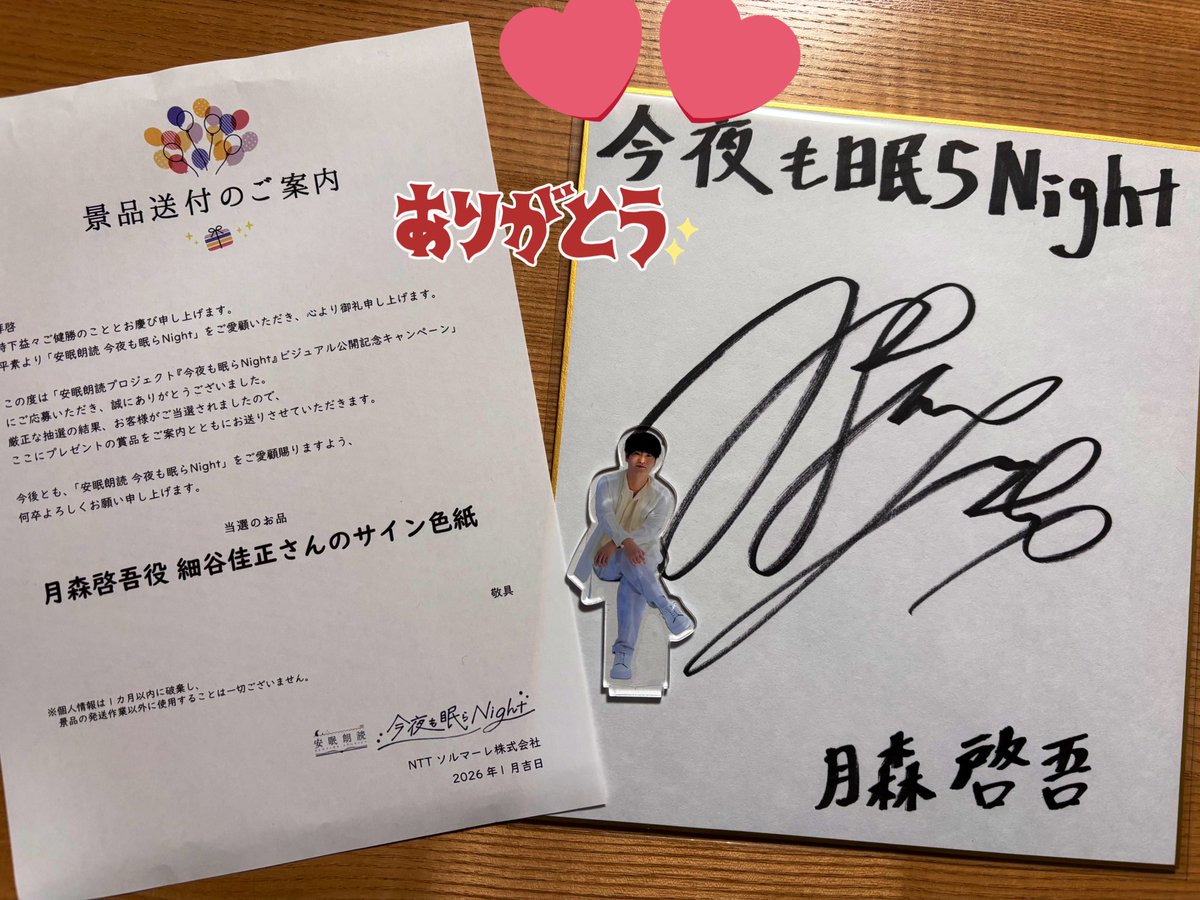 景品送付のご案内
拝啓
時下益々ご健勝のこととお慶び申し上げます。
平素より「安眠朗読 今夜も眠らNight」をご愛顧いただき、心より御礼申し上げます。
この度は「安眠朗読プロジェクト『今夜も眠らNight』ビジュアル公開記念キャンペーン」
にご応募いただき、誠にありがとうございました。
厳正な抽選の結果、お客様がご当選されましたので、
ここにプレゼントの賞品をご案内とともにお送りさせていただきます。
今後とも、「安眠朗読 今夜も眠らNight」をご愛顧賜りますよう、
何卒よろしくお願い申し上げます。
当選のお品
月森啓吾役 細谷佳正さんのサイン色紙
敬具
※個人情報は1カ月以内に破棄し、
景品の発送作業以外に使用することは一切ございません。
安眠朗読
今夜も眠らNight
NTTソルマーレ株式会社
2026年1月吉日
ありがとう
今夜も眠らNight
月森啓吾